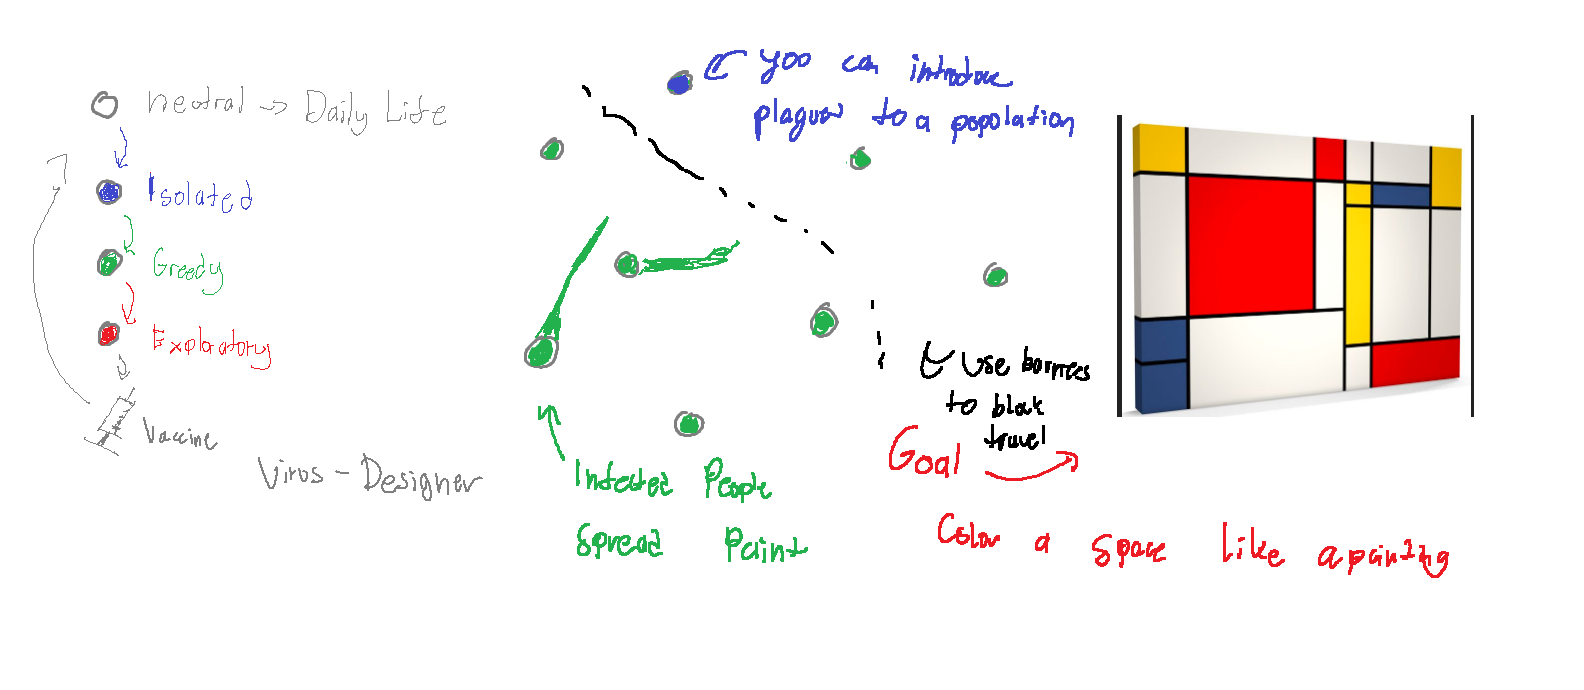 neutral → Daily Life
Isolated
Greedy
Exploratory
Vaccine
Virus - Designer
you can introduce
plagues to a population
Use barriers
to block
travel
Infected People
Spread Paint
Goal
Color a space like a painting